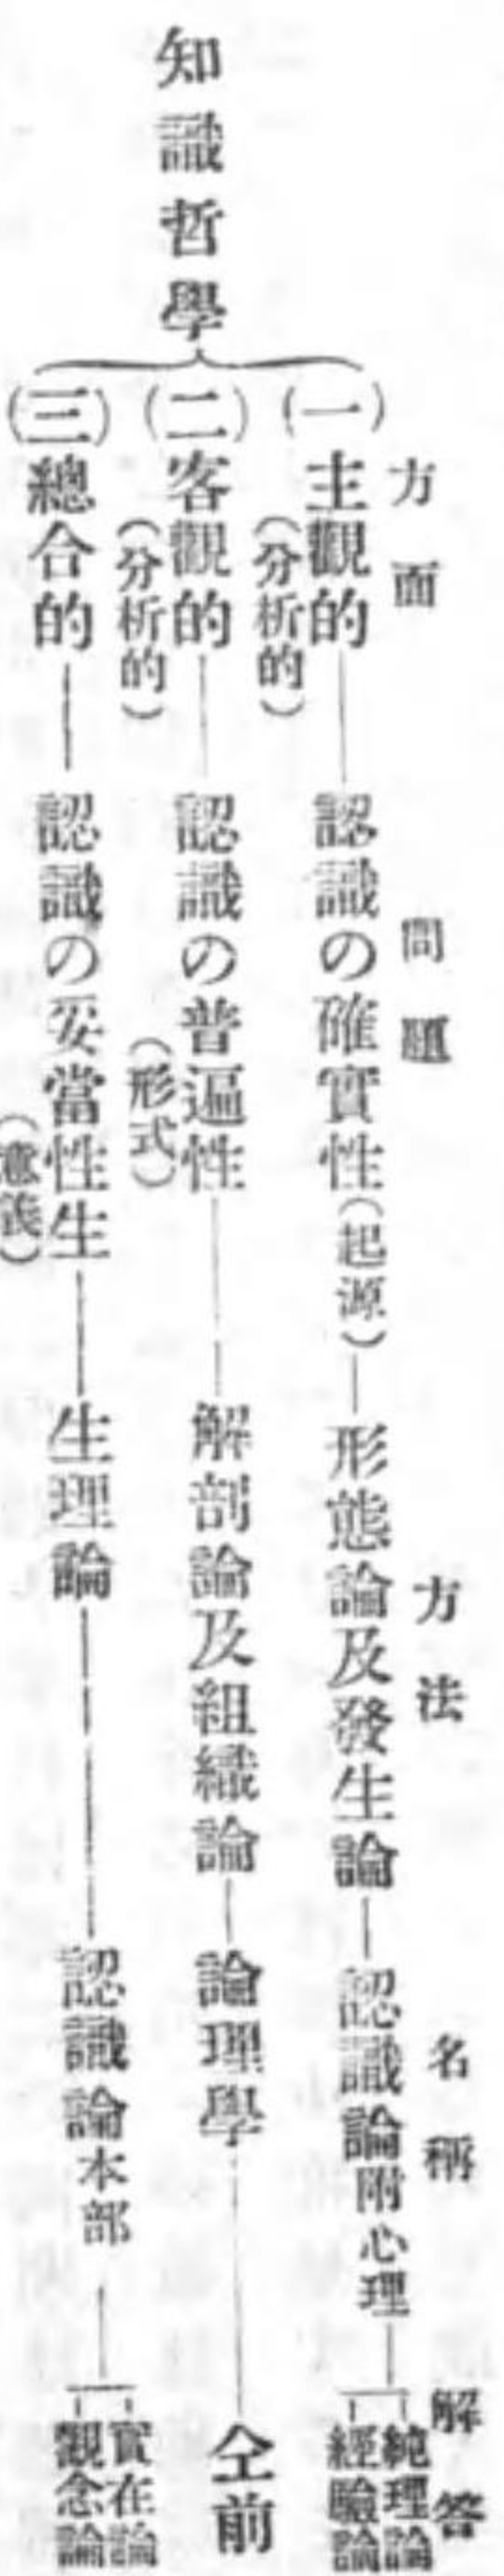 知識哲學
方面　問題　方法　名稱　解答
(一)主觀的(分析的)―認識の確實性(起源)―形態論及發生論―認識論附心理―純理論 經驗論
(二)客觀的(分析的)―認識の普遍性(形式)―解剖論及組織論―論理學―仝前
(三)總合的―認識の妥當性生(意義)―生理論―認識論本部―實在論 觀念論